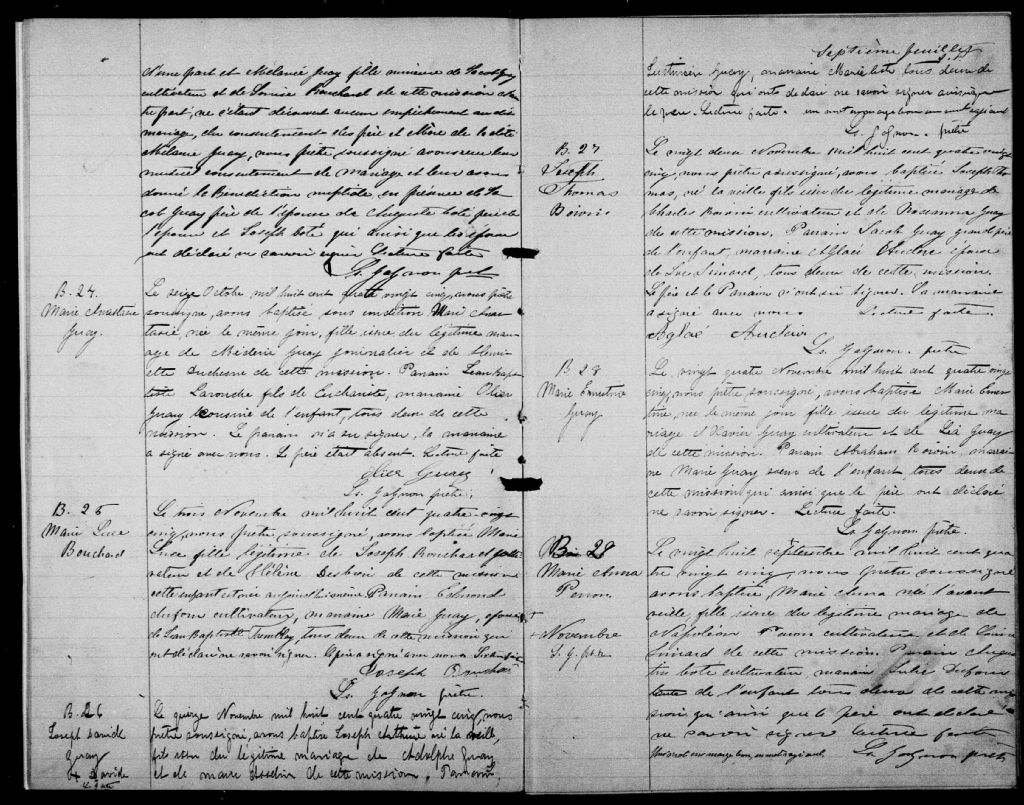 d'une part et Mélanie Guay fille mineure de Jacob Guay
cultivateur et de Louise Bouchard de cette mission d'au
tre part; ne s'étant découvert aucun empêchement au dit
mariage, du consentement des père et Mère de la dite
Mélanie Guay, nous prêtre soussigné avons reçu leur
mutuel consentement de mariage et leur avons
donné la Bénédiction nuptiale en présence de Ja
cob Guay père de l'épouse de Auguste Coté père de
l'époux et Joseph Coté qui ainsi que les époux
ont déclaré ne savoir signer Lecture faite
Ls. Gagnon ptre
B. 24.
Marie Anastasie
Guay.
Le seize Octobre mil huit cent quatre vingt cinq, nous prêtre
soussigné, avons baptisé sous condition Marie Anas
tasie, née le même jour, fille issue du légitime mari
age de Méderic Guay journalier et de Henri
ette Duchesne de cette mission. Parrain Jean Bap
tiste Larouche fils de Euchariste, marraine
Guay cousine de l'enfant, tous deux de cette
mission. Le parrain n'a su signer, la marraine
a signé avec nous. Le père était absent. Lecture faite
Guay
Ls. Gagnon prêtre.
B. 25
Marie Luce
Bouchard
Le trois Novembre mil huit cent quatre-vingt
cinq, nous prêtre soussigné, avons baptisé Marie
Luce fille légitime de Joseph Bouchard culti
vateur et de Hélène Desbiens de cette mission
cette enfant est née aujourd'hui même Parrain Edmond
Dufour cultivateur, marraine Marie Guay, épouse
de Jean Baptiste Tremblay, tous deux de cette mission qui
ont déclaré ne savoir signer. Le père a signé avec nous. Lecture faite
Joseph Bouchard
Ls. Gagnon prêtre.
B. 26
Joseph
Guay
+ Davide
Le quinze Novembre mil huit cent quatre vingt cinq, nous
prêtre soussigné, avons baptisé Joseph Arthur né la veille,
fils issu du légitime mariage de Adolphe Guay
et de Marie Asselin de cette mission. Parrain,
Septième feuillet
Guay, marraine Marie Coté tous deux de
cette mission qui ont déclaré ne savoir signer ainsi que
le père. Lecture faite.
Ls. Gagnon. prêtre
B. 27
Joseph
Thomas
Boivin
Le vingt deux Novembre mil huit cent quatre vingt
cinq, nous prêtre soussigné, avons baptisé Joseph Tho
mas, né la veille fils issu du légitime mariage de
Charles Boivin cultivateur et de Roseanna Guay
de cette mission. Parrain Jacob Guay grand père
de l'enfant, marraine Aglaé Auclerc épouse
de Luc Simard, tous deux de cette mission.
Le père et le Parrain n'ont su signer. La marraine
a signé avec nous Lecture faite.
Aglaé Auclair
Ls. Gagnon. prêtre
B. 28
Marie Ernestine
Guay
Le vingt quatre Novembre mil huit cent quatre vingt
cinq, nous prêtre soussigné, avons baptisé Marie Ernes
tine, née le même jour fille issue du légitime ma
riage d'Xavier Guay cultivateur et de Léa Guay
de cette mission. Parrain Abraham Boivin, marrai
ne Marie Guay soeur de l'enfant, tous deux de
cette mission qui ainsi que le père ont déclaré
ne savoir signer. Lecture faite.
Ls. Gagnon prêtre.
B 29
Marie Anna
Perron
+ Novembre
L. G. ptre
Le vingt huit septembre mil huit cent qua
tre vingt cinq, nous prêtre soussigné
avons baptisé, Marie Anna née l'avant
veille fille issue du légitime mariage de
Napoléon Perron cultivateur et de Louise
Simard de cette mission. Parrain Augus
te Coté cultivateur, marraine Julie Dufour
tante de l'enfant tous deux de cette mis
sion qui ainsi que le père ont déclaré
ne savoir signer Lecture faite
Ls. Gagnon prêtre